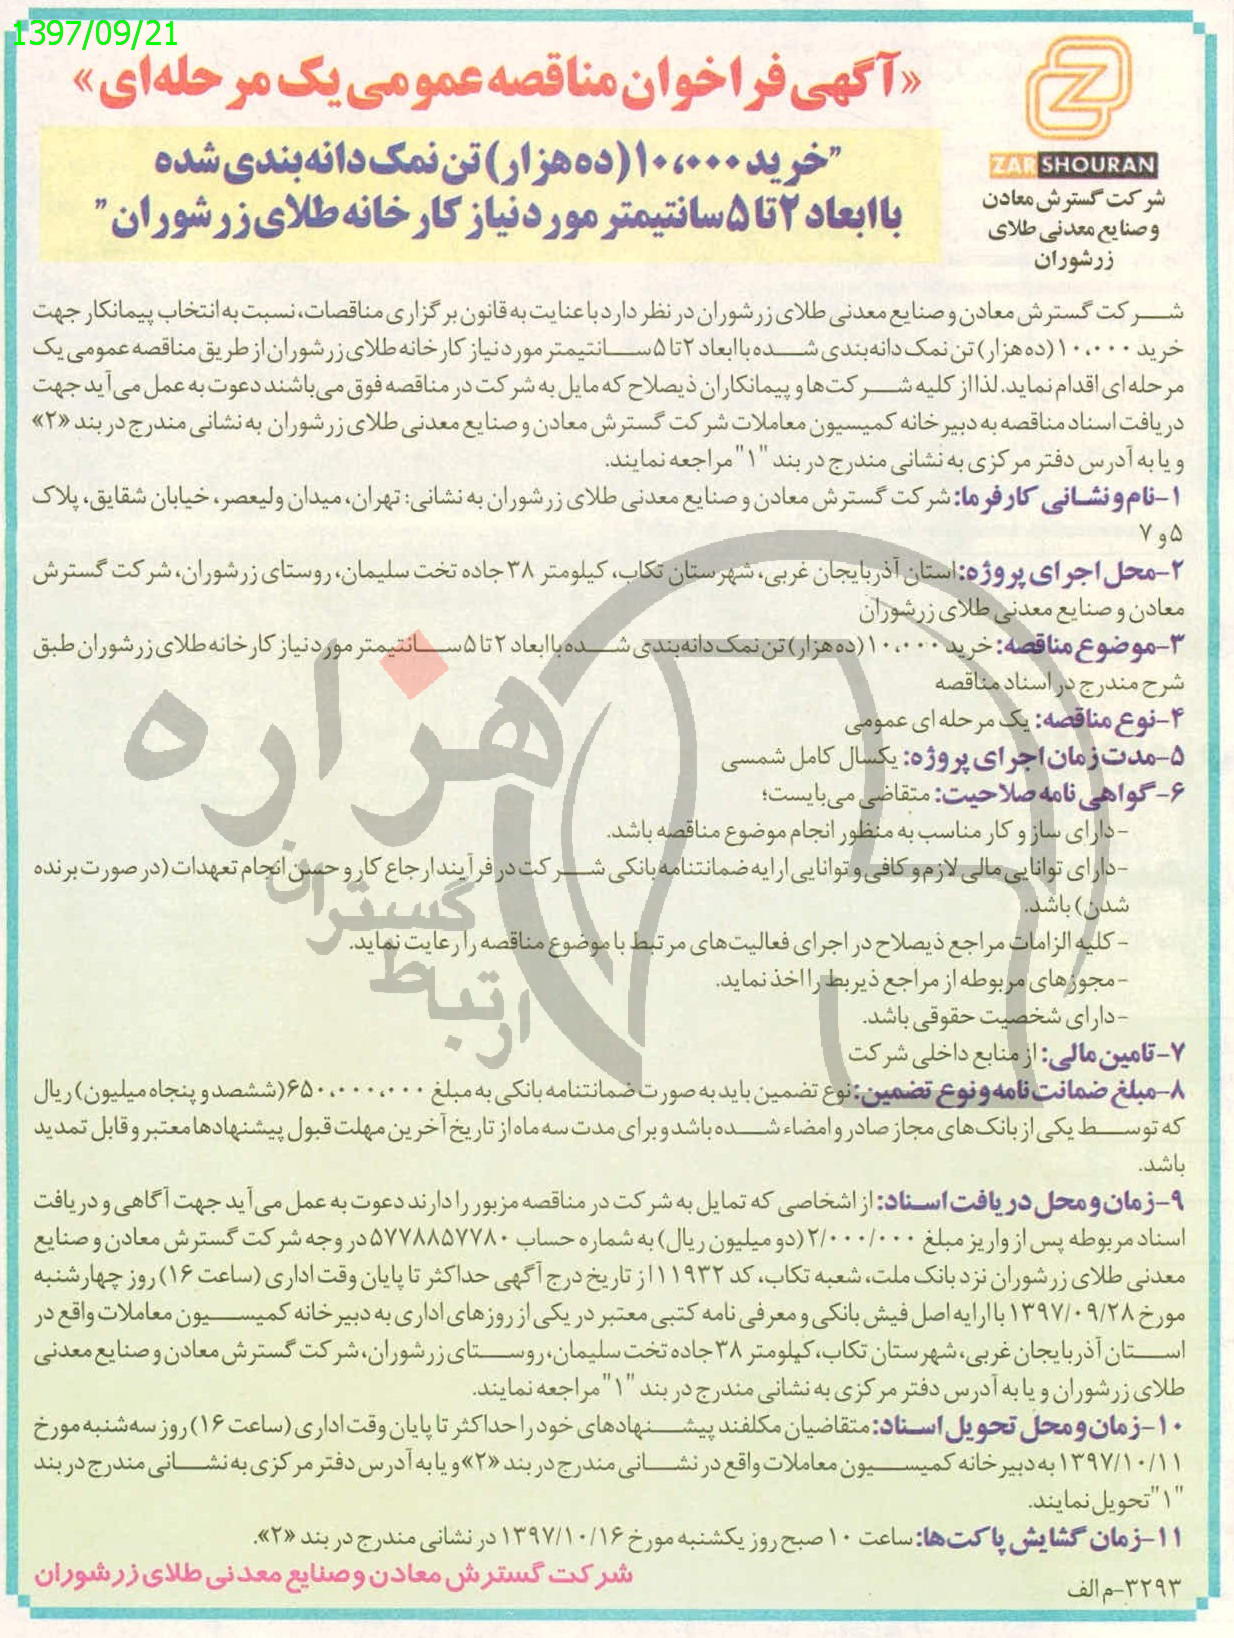 1397/09/21
«آگهی فراخوان مناقصه عمومی یک مرحله‌ای»
ZARSHOURAN
شرکت گسترش معادن
و صنایع معدنی طلای
زرشوران
"خرید ۱۰،۰۰۰ (ده هزار) تن نمک دانه‌بندی شده
با ابعاد ۲ تا ۵ سانتیمتر مورد نیاز کارخانه طلای زرشوران"
شرکت گسترش معادن و صنایع معدنی طلای زرشوران در نظر دارد با عنایت به قانون برگزاری مناقصات، نسبت به انتخاب پیمانکار جهت
خرید ۱۰،۰۰۰ (ده هزار) تن نمک دانه‌بندی شده با ابعاد ۲ تا ۵ سانتیمتر مورد نیاز کارخانه طلای زرشوران از طریق مناقصه عمومی یک
مرحله‌ای اقدام نماید. لذا از کلیه شرکت‌ها و پیمانکاران ذیصلاح که مایل به شرکت در مناقصه فوق می‌باشند دعوت به عمل می‌آید جهت
دریافت اسناد مناقصه به دبیرخانه کمیسیون معاملات شرکت گسترش معادن و صنایع معدنی طلای زرشوران به نشانی مندرج در بند «۲»
و یا به آدرس دفتر مرکزی به نشانی مندرج در بند "۱" مراجعه نمایند.
۱-نام و نشانی کارفرما: شرکت گسترش معادن و صنایع معدنی طلای زرشوران به نشانی: تهران، میدان ولیعصر، خیابان شقایق، پلاک
۵ و ۷
۲-محل اجرای پروژه: استان آذربایجان غربی، شهرستان تکاب، کیلومتر ۳۸ جاده تخت سلیمان، روستای زرشوران، شرکت گسترش
معادن و صنایع معدنی طلای زرشوران
۳-موضوع مناقصه: خرید ۱۰،۰۰۰ (ده هزار) تن نمک دانه‌بندی شده با ابعاد ۲ تا ۵ سانتیمتر مورد نیاز کارخانه طلای زرشوران طبق
شرح مندرج در اسناد مناقصه
۴-نوع مناقصه: یک مرحله ای عمومی
۵-مدت زمان اجرای پروژه: یکسال کامل شمسی
۶-گواهی نامه صلاحیت: متقاضی می‌بایست؛
-دارای ساز و کار مناسب به منظور انجام موضوع مناقصه باشد.
-دارای توانایی مالی لازم و کافی و توانایی ارایه ضمانتنامه بانکی شرکت در فرآیند ارجاع کار و حسن انجام تعهدات (در صورت برنده
شدن) باشد.
- کلیه الزامات مراجع ذیصلاح در اجرای فعالیت‌های مرتبط با موضوع مناقصه را رعایت نماید.
-مجوزهای مربوطه از مراجع ذیربط را اخذ نماید.
-دارای شخصیت حقوقی باشد.
۷-تامین مالی: از منابع داخلی شرکت
۸-مبلغ ضمانت نامه و نوع تضمین: نوع تضمین باید به صورت ضمانتنامه بانکی به مبلغ ۶۵۰،۰۰۰،۰۰۰ (ششصد و پنجاه میلیون) ریال
که توسط یکی از بانک‌های مجاز صادر و امضاء شده باشد و برای مدت سه ماه از تاریخ آخرین مهلت قبول پیشنهادها معتبر و قابل تمدید
باشد.
۹-زمان و محل دریافت اسناد: از اشخاصی که تمایل به شرکت در مناقصه مزبور را دارند دعوت به عمل می‌آید جهت آگاهی و دریافت
اسناد مربوطه پس از واریز مبلغ ۲/۰۰۰/۰۰۰ (دو میلیون ریال) به شماره حساب ۵۷۷۸۸۵۷۷۸۰ در وجه شرکت گسترش معادن و صنایع
معدنی طلای زرشوران نزد بانک ملت، شعبه تکاب، کد ۱۱۹۳۲ از تاریخ درج آگهی حداکثر تا پایان وقت اداری (ساعت ۱۶) روز چهارشنبه
مورخ ۱۳۹۷/۰۹/۲۸ با ارایه اصل فیش بانکی و معرفی نامه کتبی معتبر در یکی از روزهای اداری به دبیرخانه کمیسیون معاملات واقع در
استان آذربایجان غربی، شهرستان تکاب، کیلومتر ۳۸ جاده تخت سلیمان، روستای زرشوران، شرکت گسترش معادن و صنایع معدنی
طلای زرشوران و یا به آدرس دفتر مرکزی به نشانی مندرج در بند "۱" مراجعه نمایند.
۱۰-زمان و محل تحویل اسناد: متقاضیان مکلفند پیشنهادهای خود را حداکثر تا پایان وقت اداری (ساعت ۱۶) روز سه‌شنبه مورخ
۱۳۹۷/۱۰/۱۱ به دبیرخانه کمیسیون معاملات واقع در نشانی مندرج در بند «۲» و یا به آدرس دفتر مرکزی به نشانی مندرج در بند
"۱" تحویل نمایند.
۱۱-زمان گشایش پاکت‌ها: ساعت ۱۰ صبح روز یکشنبه مورخ ۱۳۹۷/۱۰/۱۶ در نشانی مندرج در بند «۲».
شرکت گسترش معادن و صنایع معدنی طلای زرشوران
۳۲۹۳-م الف
هزاره
گستران
ارتباط